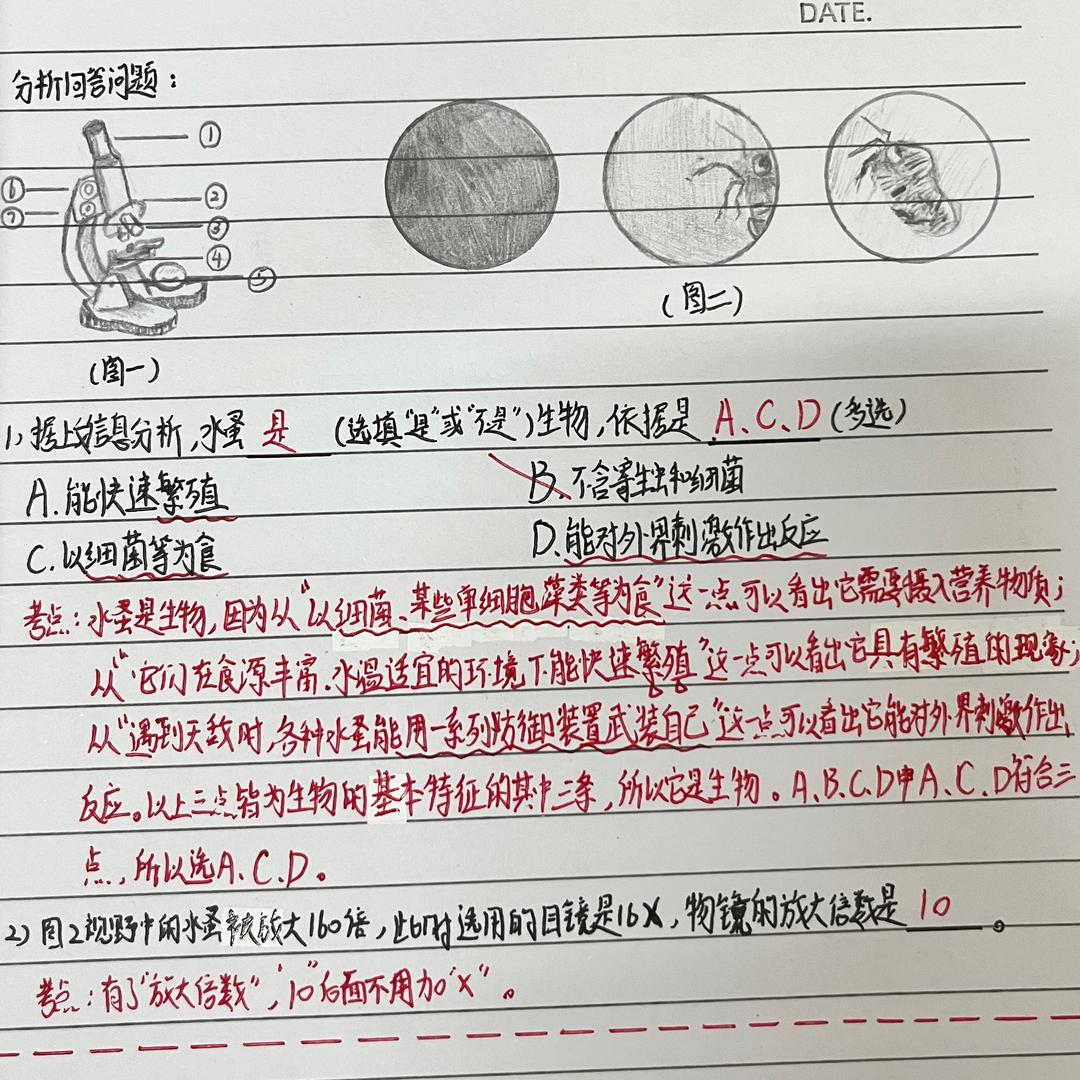 DATE.
分析回答问题：
① ② ③ ④ ⑤ ⑥ ⑦
(图一)
(图二)
1) 据上文信息分析,水蚤 是 (选填"是"或"不是")生物,依据是 A、C、D (多选)
A.能快速繁殖 B.不含寄生虫和细菌
C.以细菌等为食 D.能对外界刺激作出反应
考点：水蚤是生物,因为从"以细菌、某些单细胞藻类等为食"这一点可以看出它需要摄入营养物质；
从"它们在食源丰富、水温适宜的环境下能快速繁殖"这一点可以看出它具有繁殖的现象；
从"遇到天敌时,各种水蚤能用一系列防御装置武装自己"这一点可以看出它能对外界刺激作出
反应。以上三点皆为生物的基本特征的其中三条,所以它是生物。A、B、C、D中A、C、D符合三
点,所以选A、C、D。
2) 图2视野中的水蚤被放大160倍,此时选用的目镜是16X,物镜的放大倍数是 10 。
考点：有了"放大倍数","10"后面不用加"X"。